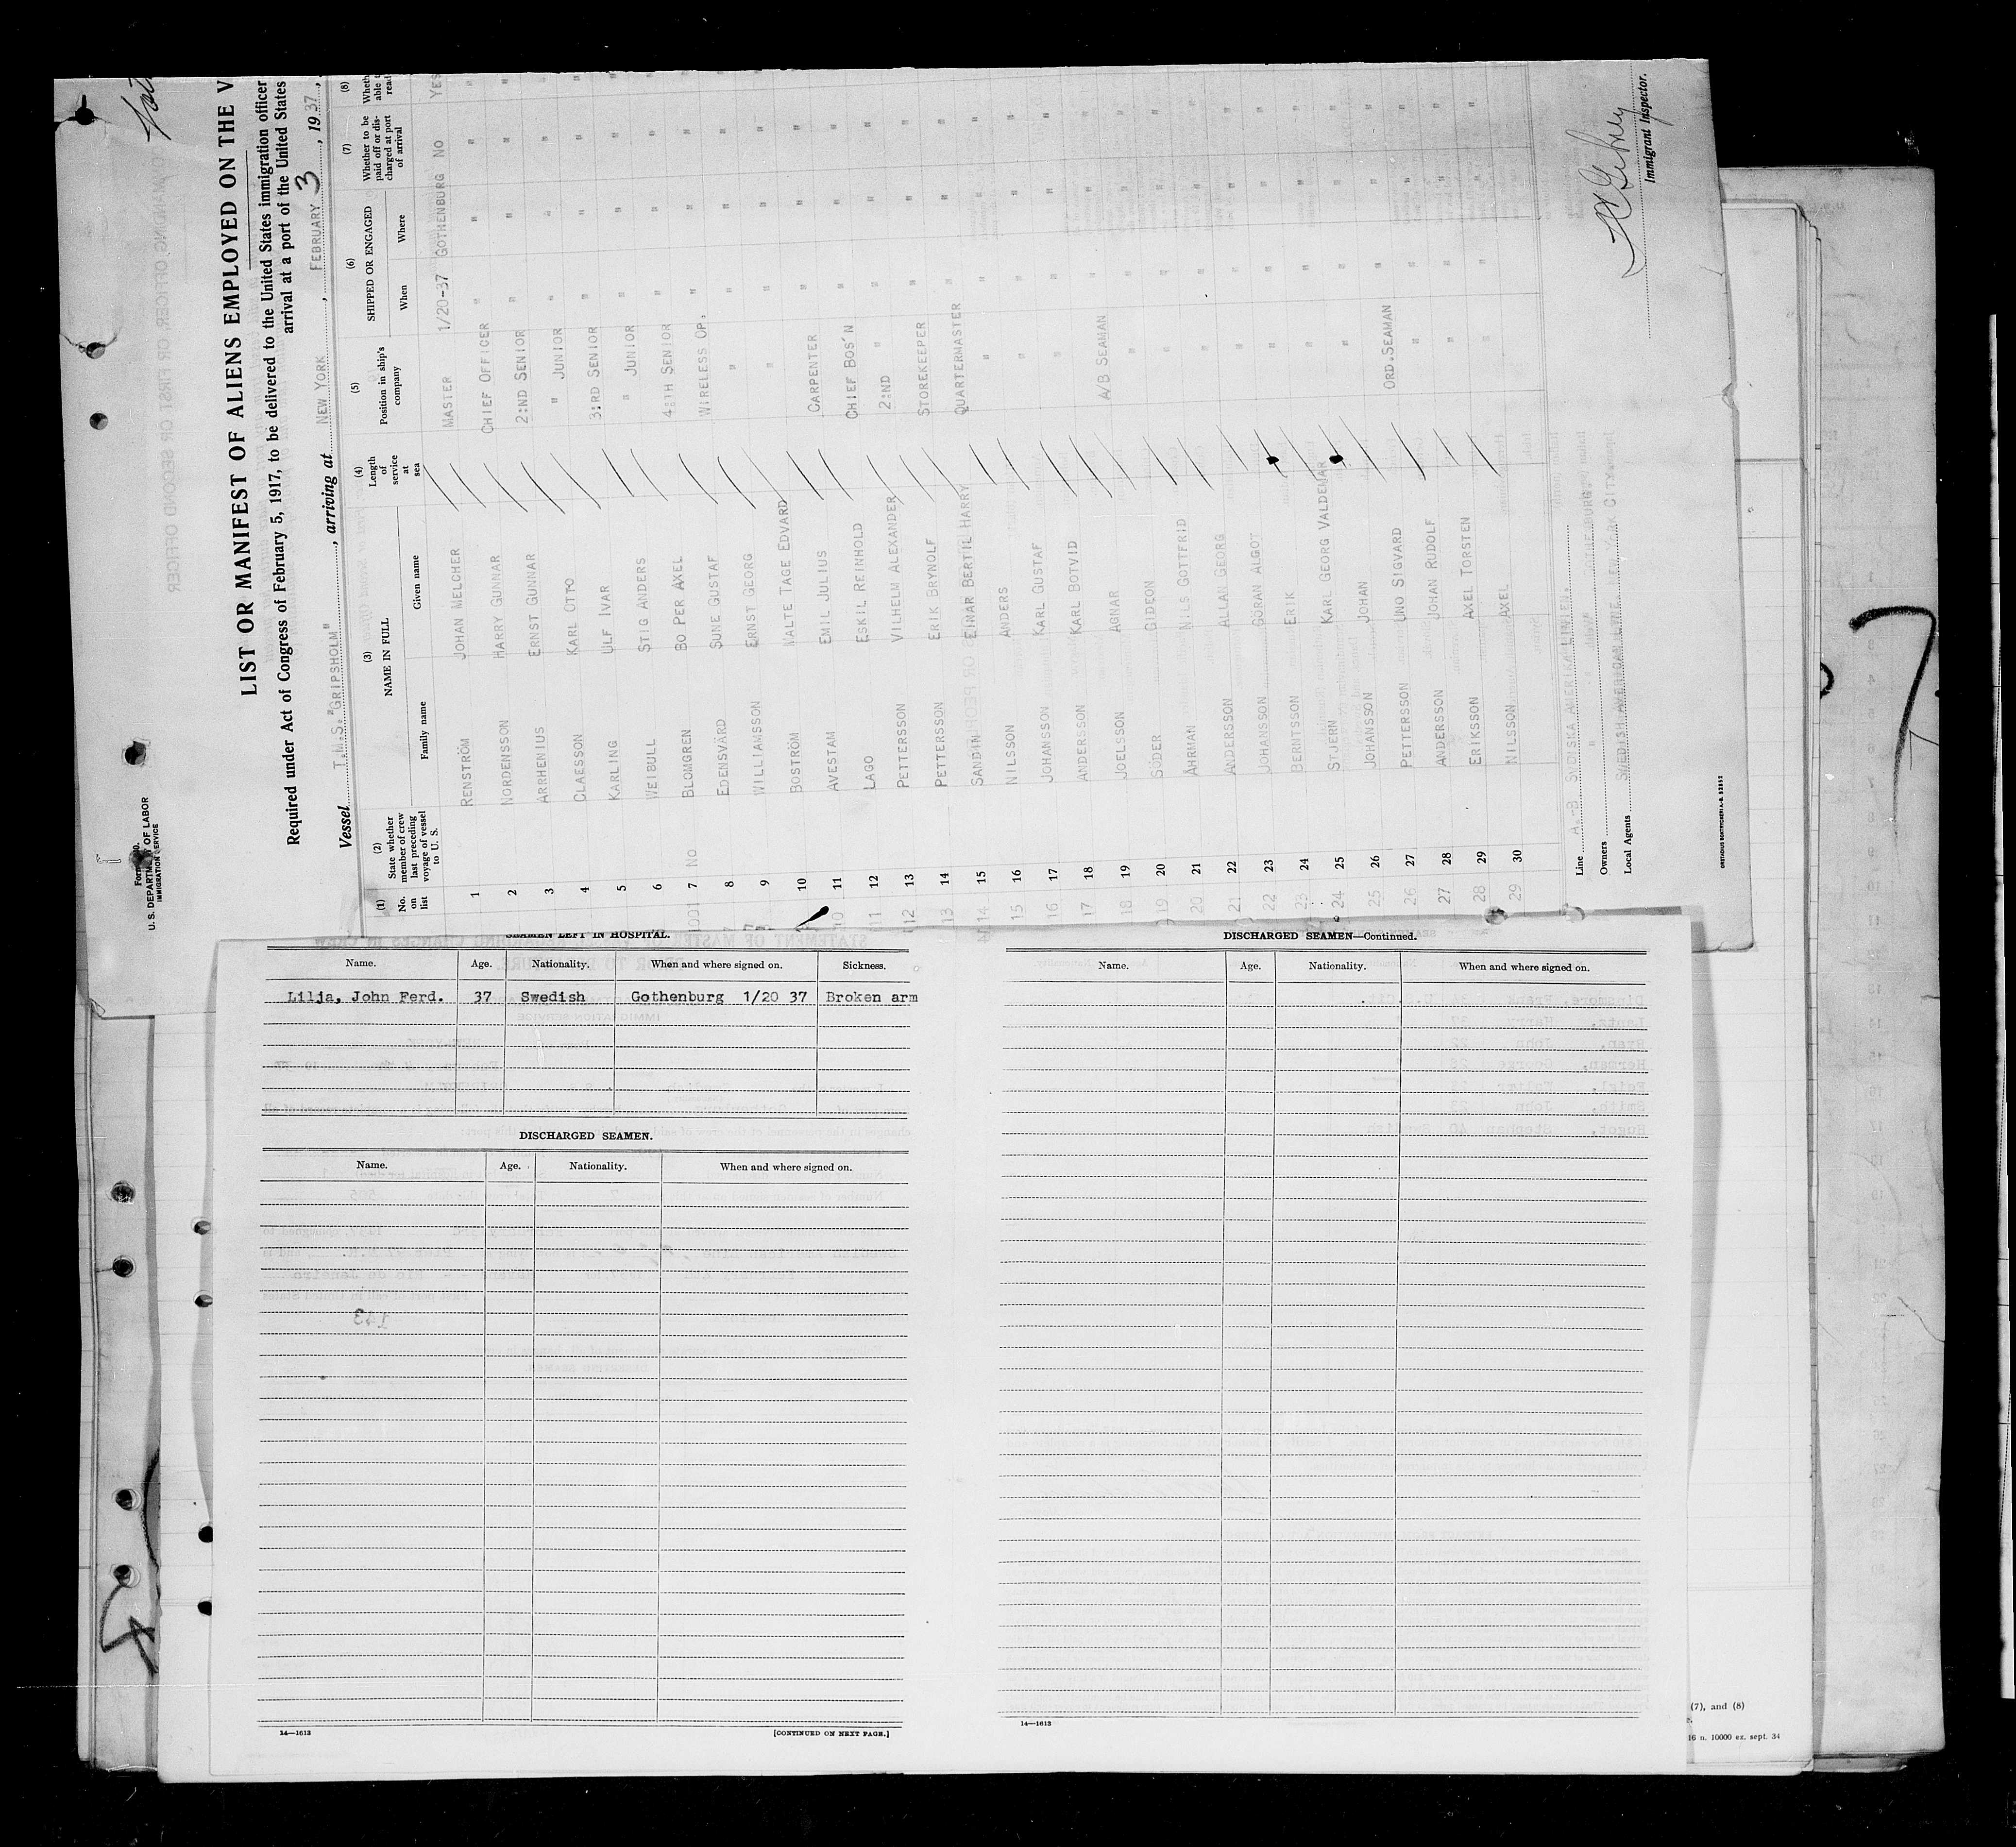 Form
U. S. DEPARTMENT OF LABOR
IMMIGRATION SERVICE
LIST OR MANIFEST OF ALIENS EMPLOYED ON THE V
Required under Act of Congress of February 5, 1917, to be delivered to the United States immigration officer
arrival at a port of the United States
Vessel T.M.S."GRIPSHOLM", arriving at NEW YORK, FEBRUARY 3, 1937,
(1) (2) (3) (4) (5) (6) (7) (8)
No. on list State whether member of crew last preceding voyage of vessel to U. S. NAME IN FULL Length of service at sea Position in ship's company SHIPPED OR ENGAGED Whether to be paid off or discharged at port of arrival Wheth able t read
Family name Given name When Where
1 RENSTRÖM JOHAN MELCHER MASTER 1/20-37 GOTHENBURG NO YES
2 NORDENSSON HARRY GUNNAR CHIEF OFFICER " " " "
3 ARRHENIUS ERNST GUNNAR 2:ND SENIOR " " " "
4 CLAESSON KARL OTTO " JUNIOR " " " "
5 KARLING ULF IVAR 3:RD SENIOR " " " "
6 WEIBULL STIG ANDERS " JUNIOR " " " "
1001 7 NO BLOMGREN BO PER AXEL 4:TH SENIOR " " " "
8 EDENSVÄRD SUNE GUSTAF WIRELESS OP. " " " "
9 WILLIAMSSON ERNST GEORG " " " " "
10 BOSTRÖM MALTE TAGE EDVARD " " " " "
10 11 AVESTAM EMIL JULIUS CARPENTER " " " "
11 12 LAGO ESKIL REINHOLD CHIEF BOS'N " " " "
12 13 PETTERSSON VILHELM ALEXANDER 2:ND " " " " "
13 14 PETTERSSON ERIK BRYNOLF STOREKEEPER " " " "
14 15 SANDIN EINAR BERTIL HARRY QUARTERMASTER " " " "
15 16 NILSSON ANDERS " " " " "
16 17 JOHANSSON KARL GUSTAF " " " " "
17 18 ANDERSSON KARL BOTVID " " " " "
18 19 JOELSSON AGNAR A/B SEAMAN " " " "
19 20 SÖDER GIDEON " " " " "
20 21 ÅHRMAN NILS GOTTFRID " " " " "
21 22 ANDERSSON ALLAN GEORG " " " " "
22 23 JOHANSSON GÖRAN ALGOT " " " " "
23 24 BERNTSSON ERIK " " " " "
24 25 STJERN KARL GEORG VALDEMAR " " " " "
25 26 JOHANSSON JOHAN " " " " "
26 27 PETTERSSON UNO SIGVARD ORD.SEAMAN " " " "
27 28 ANDERSSON JOHAN RUDOLF " " " " "
28 29 ERIKSSON AXEL TORSTEN " " " " "
29 30 NILSSON AXEL
Line A.-B SVENSKA AMERIKA LINIEN,
Owners " " "
Local Agents SWEDISH AMERICAN LINE, NEW YORK CITY
Immigrant Inspector.
SEAMEN LEFT IN HOSPITAL.
Name. Age. Nationality. When and where signed on. Sickness.
Lilja, John Ferd. 37 Swedish Gothenburg 1/20 37 Broken arm
DISCHARGED SEAMEN.
Name. Age. Nationality. When and where signed on.
14—1613 [CONTINUED ON NEXT PAGE.]
DISCHARGED SEAMEN—Continued.
Name. Age. Nationality. When and where signed on.
14—1613
(7), and (8)
16 n. 10000 ex. sept. 34